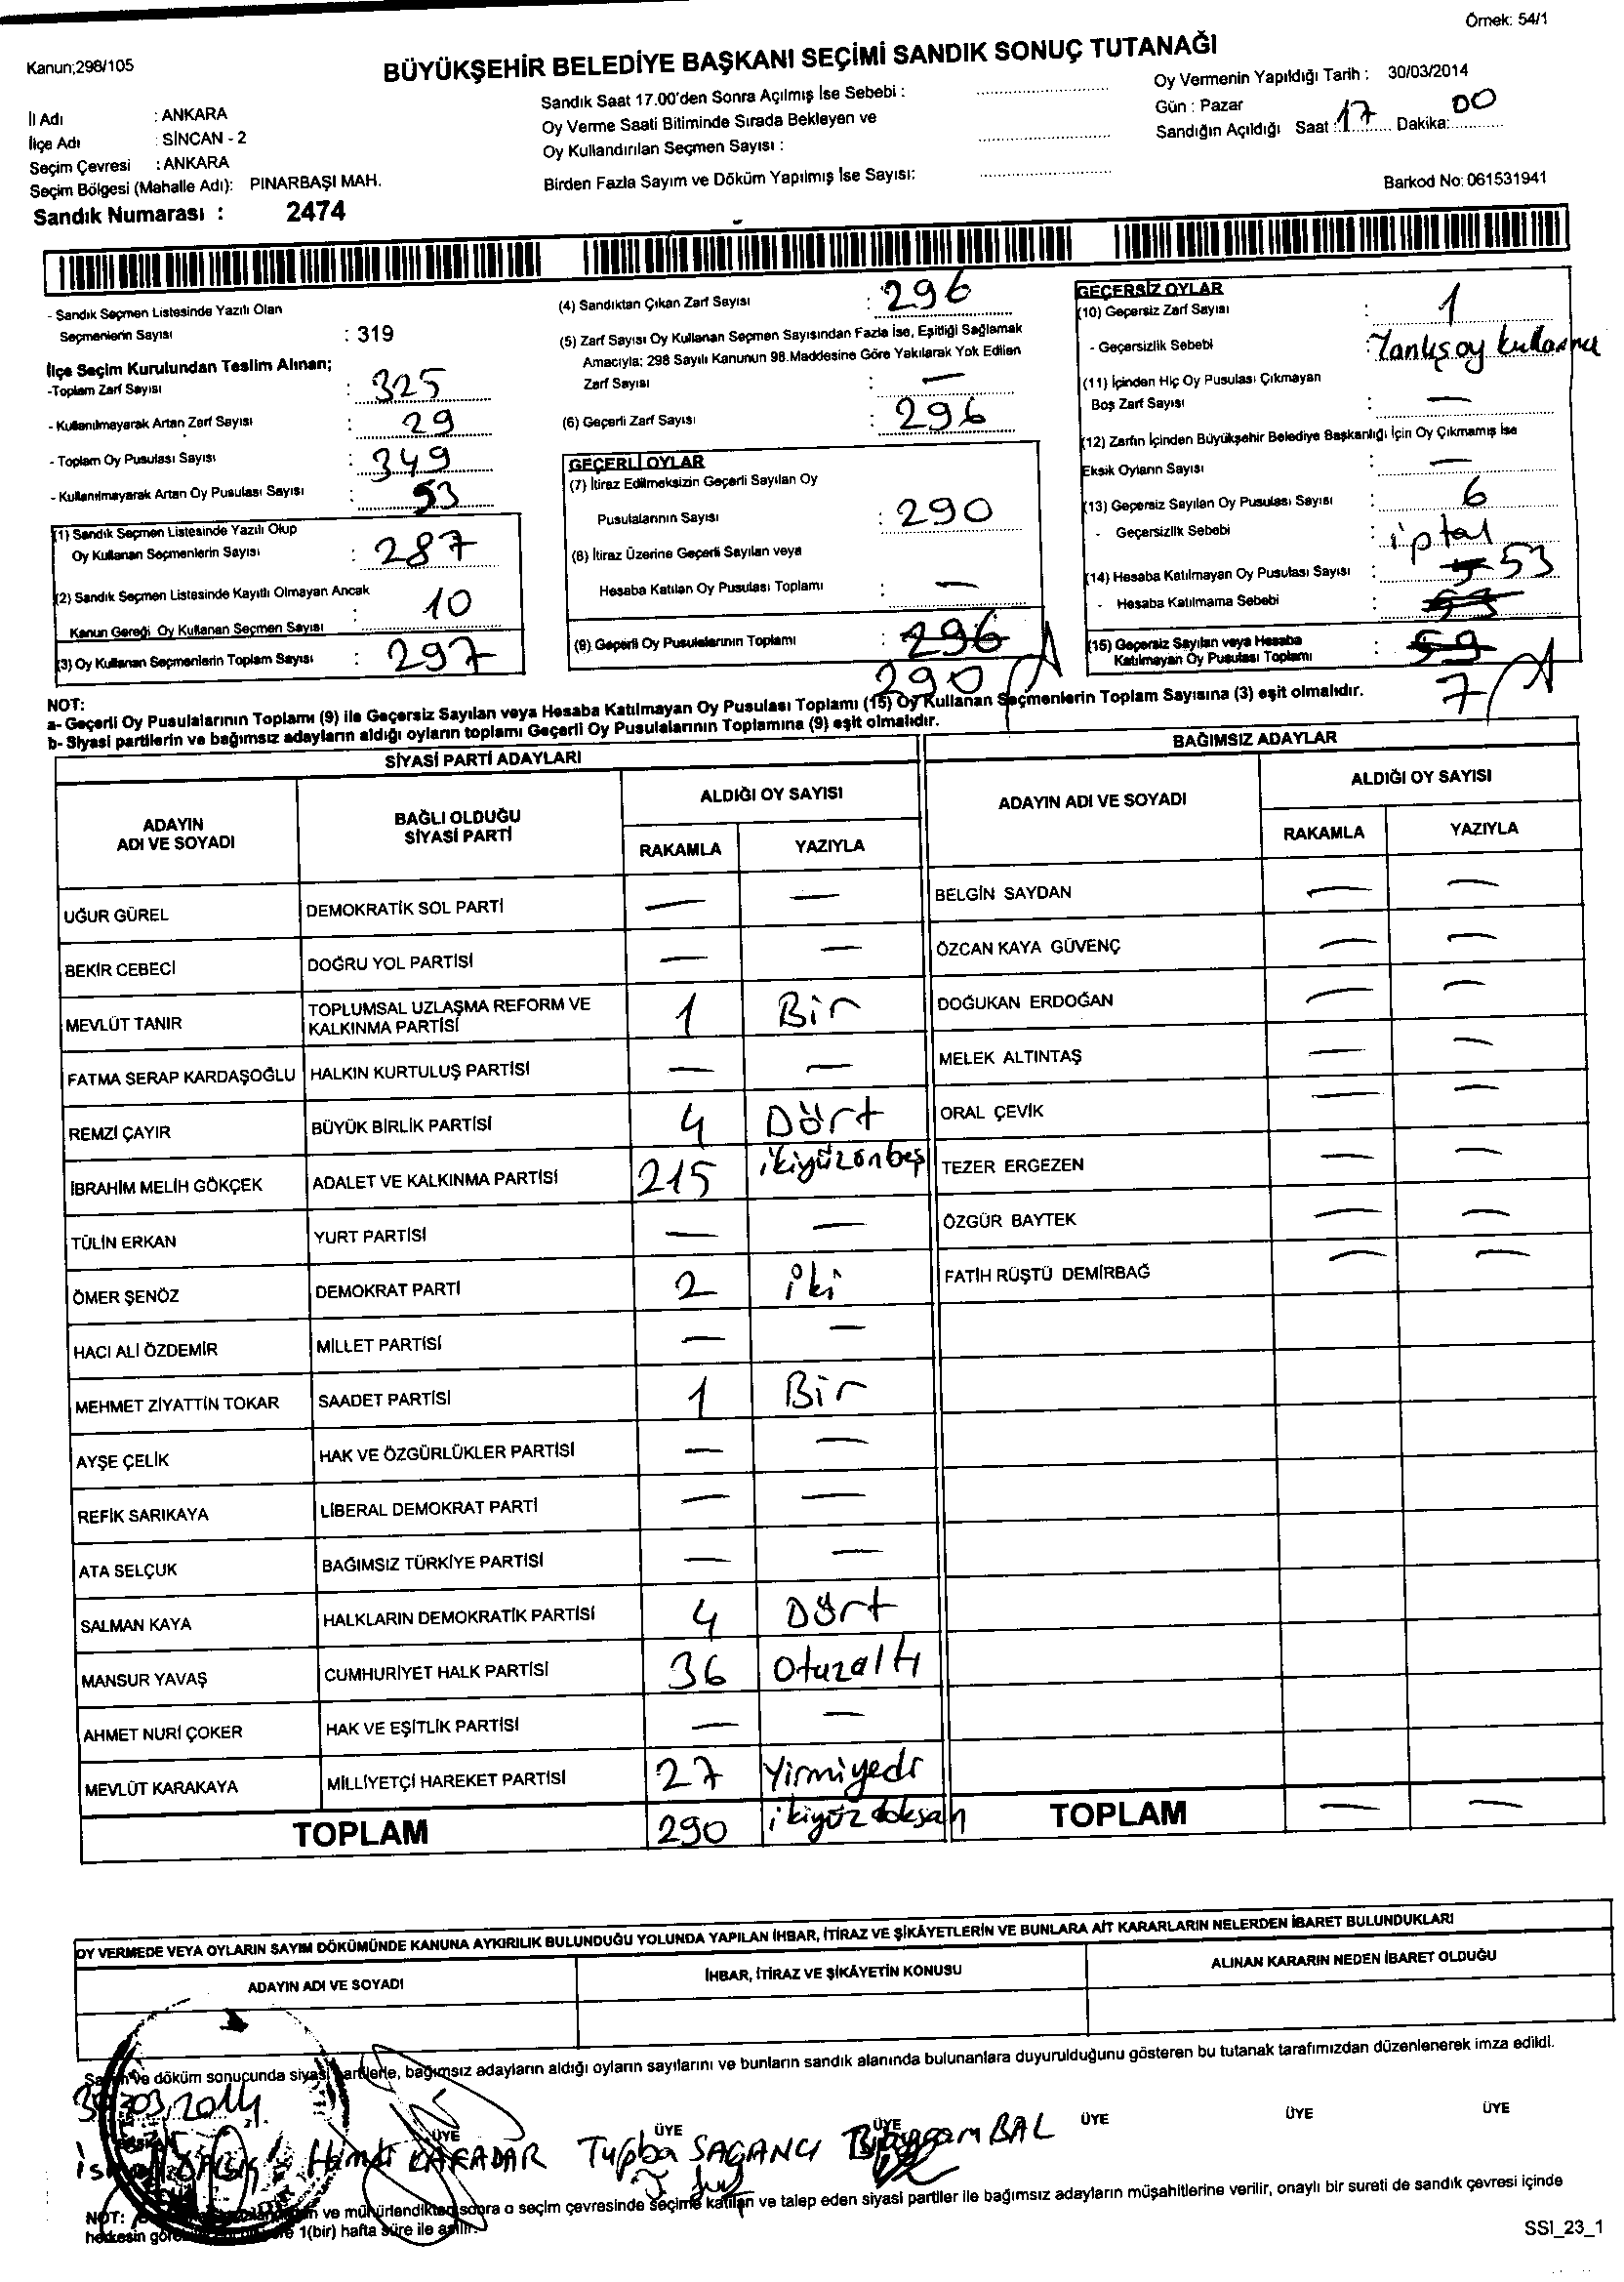 Örnek: 54/1
Kanun;298/105
BÜYÜKŞEHİR BELEDİYE BAŞKANI SEÇİMİ SANDIK SONUÇ TUTANAĞI
İl Adı : ANKARA
İlçe Adı : SİNCAN - 2
Seçim Çevresi : ANKARA
Seçim Bölgesi (Mahalle Adı): PINARBAŞI MAH.
Sandık Numarası : 2474
Sandık Saat 17.00'den Sonra Açılmış İse Sebebi :
Oy Verme Saati Bitiminde Sırada Bekleyen ve
Oy Kullandırılan Seçmen Sayısı :
Birden Fazla Sayım ve Döküm Yapılmış İse Sayısı:
Oy Vermenin Yapıldığı Tarih : 30/03/2014
Gün : Pazar
Sandığın Açıldığı Saat : 17 Dakika: 00
Barkod No: 061531941
- Sandık Seçmen Listesinde Yazılı Olan
Seçmenlerin Sayısı : 319
İlçe Seçim Kurulundan Teslim Alınan;
-Toplam Zarf Sayısı : 325
- Kullanılmayarak Artan Zarf Sayısı : 29
- Toplam Oy Pusulası Sayısı : 349
- Kullanılmayarak Artan Oy Pusulası Sayısı : 53
(1) Sandık Seçmen Listesinde Yazılı Olup
Oy Kullanan Seçmenlerin Sayısı : 287
(2) Sandık Seçmen Listesinde Kayıtlı Olmayan Ancak
Kanun Gereği Oy Kullanan Seçmen Sayısı : 10
(3) Oy Kullanan Seçmenlerin Toplam Sayısı : 297
(4) Sandıktan Çıkan Zarf Sayısı : 296
(5) Zarf Sayısı Oy Kullanan Seçmen Sayısından Fazla İse, Eşitliği Sağlamak
Amacıyla; 298 Sayılı Kanunun 98.Maddesine Göre Yakılarak Yok Edilen
Zarf Sayısı : —
(6) Geçerli Zarf Sayısı : 296
GEÇERLİ OYLAR
(7) İtiraz Edilmeksizin Geçerli Sayılan Oy
Pusulalarının Sayısı : 290
(8) İtiraz Üzerine Geçerli Sayılan veya
Hesaba Katılan Oy Pusulası Toplamı : —
(9) Geçerli Oy Pusulalarının Toplamı : 296
290
GEÇERSİZ OYLAR
(10) Geçersiz Zarf Sayısı : 1
- Geçersizlik Sebebi : Yanlış oy kullanma
(11) İçinden Hiç Oy Pusulası Çıkmayan
Boş Zarf Sayısı : —
(12) Zarfın İçinden Büyükşehir Belediye Başkanlığı İçin Oy Çıkmamış İse
Eksik Oyların Sayısı —
(13) Geçersiz Sayılan Oy Pusulası Sayısı : 6
- Geçersizlik Sebebi : iptal
(14) Hesaba Katılmayan Oy Pusulası Sayısı : 53
- Hesaba Katılmama Sebebi : 53
(15) Geçersiz Sayılan veya Hesaba
Katılmayan Oy Pusulası Toplamı : 59
7
NOT:
a- Geçerli Oy Pusulalarının Toplamı (9) ile Geçersiz Sayılan veya Hesaba Katılmayan Oy Pusulası Toplamı (15) Oy Kullanan Seçmenlerin Toplam Sayısına (3) eşit olmalıdır.
b- Siyasi partilerin ve bağımsız adayların aldığı oyların toplamı Geçerli Oy Pusulalarının Toplamına (9) eşit olmalıdır.
SİYASİ PARTİ ADAYLARI
ADAYIN ADI VE SOYADI
BAĞLI OLDUĞU SİYASİ PARTİ
ALDIĞI OY SAYISI
RAKAMLA YAZIYLA
UĞUR GÜREL DEMOKRATİK SOL PARTİ — —
BEKİR CEBECİ DOĞRU YOL PARTİSİ — —
MEVLÜT TANIR TOPLUMSAL UZLAŞMA REFORM VE KALKINMA PARTİSİ 1 Bir
FATMA SERAP KARDAŞOĞLU HALKIN KURTULUŞ PARTİSİ — —
REMZİ ÇAYIR BÜYÜK BİRLİK PARTİSİ 4 Dört
İBRAHİM MELİH GÖKÇEK ADALET VE KALKINMA PARTİSİ 215 ikiyüzonbeş
TÜLİN ERKAN YURT PARTİSİ — —
ÖMER ŞENÖZ DEMOKRAT PARTİ 2 iki
HACI ALİ ÖZDEMİR MİLLET PARTİSİ — —
MEHMET ZİYATTİN TOKAR SAADET PARTİSİ 1 Bir
AYŞE ÇELİK HAK VE ÖZGÜRLÜKLER PARTİSİ — —
REFİK SARIKAYA LİBERAL DEMOKRAT PARTİ — —
ATA SELÇUK BAĞIMSIZ TÜRKİYE PARTİSİ — —
SALMAN KAYA HALKLARIN DEMOKRATİK PARTİSİ 4 Dört
MANSUR YAVAŞ CUMHURİYET HALK PARTİSİ 36 Otuzaltı
AHMET NURİ ÇOKER HAK VE EŞİTLİK PARTİSİ — —
MEVLÜT KARAKAYA MİLLİYETÇİ HAREKET PARTİSİ 27 Yirmiyedi
TOPLAM 290 ikiyüzdoksan
BAĞIMSIZ ADAYLAR
ADAYIN ADI VE SOYADI
ALDIĞI OY SAYISI
RAKAMLA YAZIYLA
BELGİN SAYDAN — —
ÖZCAN KAYA GÜVENÇ — —
DOĞUKAN ERDOĞAN — —
MELEK ALTINTAŞ — —
ORAL ÇEVİK — —
TEZER ERGEZEN — —
ÖZGÜR BAYTEK — —
FATİH RÜŞTÜ DEMİRBAĞ — —
TOPLAM — —
OY VERMEDE VEYA OYLARIN SAYIM DÖKÜMÜNDE KANUNA AYKIRILIK BULUNDUĞU YOLUNDA YAPILAN İHBAR, İTİRAZ VE ŞİKÂYETLERİN VE BUNLARA AİT KARARLARIN NELERDEN İBARET BULUNDUKLARI
ADAYIN ADI VE SOYADI
İHBAR, İTİRAZ VE ŞİKÂYETİN KONUSU
ALINAN KARARIN NEDEN İBARET OLDUĞU
ve döküm sonucunda siyasi partilerle, bağımsız adayların aldığı oyların sayılarını ve bunların sandık alanında bulunanlara duyurulduğunu gösteren bu tutanak tarafımızdan düzenlenerek imza edildi.
30.03.2014
ÜYE ÜYE ÜYE ÜYE ÜYE ÜYE
KARADAR Tuğba SAGANCI BAL
NOT: ve mühürlendikten sonra o seçim çevresinde seçime katılan ve talep eden siyasi partiler ile bağımsız adayların müşahitlerine verilir, onaylı bir sureti de sandık çevresi içinde
herkesin 1(bir) hafta süre ile asılır.
SSI_23_1